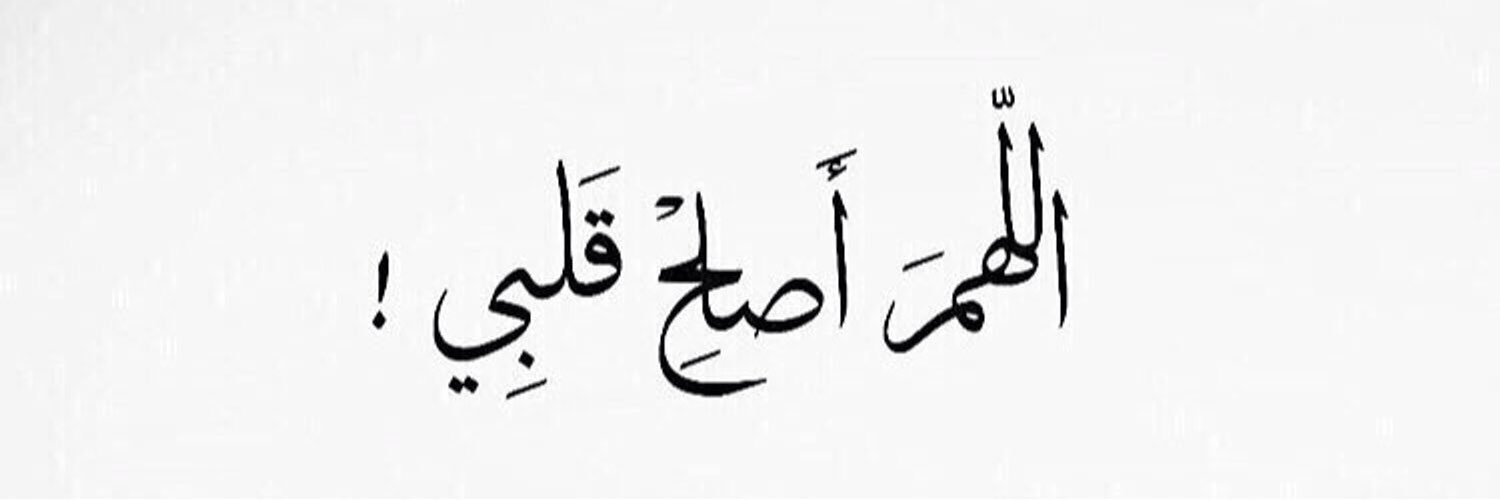 اللّهمَ أَصلِحْ قَلبِي !